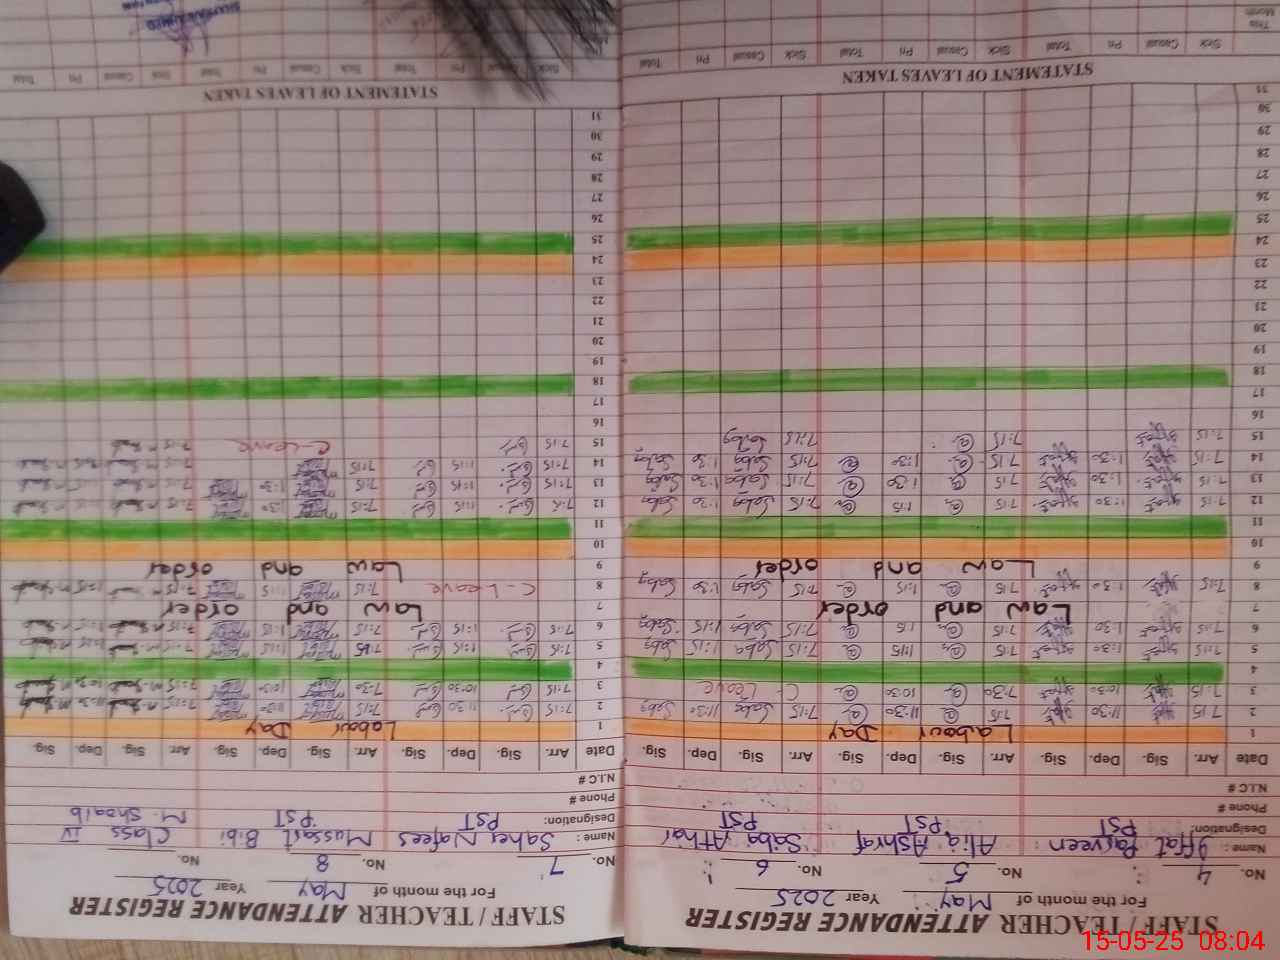 STAFF / TEACHER ATTENDANCE REGISTER
For the month of May Year 2025
No. 4 No. 5 No. 6
Name: Iffat Parveen Alia Ashraf Saba Athar
Designation: PST PST PST
Phone #
N.I.C #
Date Arr. Sig. Dep. Sig. Arr. Sig. Dep. Sig. Arr. Sig. Dep. Sig.
1 Labour Day
2 7:15 11:30 7:15 11:30 7:15 Saba 11:30 Saba
3 7:15 10:30 7:30 10:30 C-Leave
4
5 7:15 1:30 7:15 1:15 7:15 Saba 1:15 Saba
6 7:15 1:30 7:15 1:15 7:15 Saba 1:15 Saba
7 Law and order
8 7:15 1:30 7:15 1:15 7:15 Saba 1:30 Saba
9 Law and order
10
11
12 7:15 1:30 7:15 1:15 7:15 Saba 1:30 Saba
13 7:15 1:30 7:15 1:30 7:15 Saba 1:30 Saba
14 7:15 1:30 7:15 1:30 7:15 Saba 1:30 Saba
15 7:15 7:15 7:15 Saba
16
17
18
19
20
21
22
23
24
25
26
27
28
29
30
31
STATEMENT OF LEAVES TAKEN
Sick Casual Pri Total Sick Casual Pri Total Sick Casual Pri Total
This Month
STAFF / TEACHER ATTENDANCE REGISTER
For the month of May Year 2025
No. 7 No. 8 No.
Name: Saher Nafees Mussait Bibi Class IV
Designation: PST PST M. Shoaib
Phone #
N.I.C #
Date Arr. Sig. Dep. Sig. Arr. Sig. Dep. Sig. Arr. Sig. Dep. Sig.
1 Labour Day
2 7:15 11:30 7:15 11:30 7:15 11:30
3 7:15 10:30 7:30 10:30 7:15 10:30
4
5 7:15 1:15 7:15 1:15 7:15 1:15
6 7:15 1:15 7:15 1:15 7:15 1:15
7 Law and order
8 C-Leave 7:15 1:15 7:15 1:15
9 Law and order
10
11
12 7:15 1:15 7:15 1:30 7:15
13 7:15 1:15 7:15 1:30 7:15
14 7:15 1:15 7:15 7:15
15 7:15 C-Leave 7:15
16
17
18
19
20
21
22
23
24
25
26
27
28
29
30
31
STATEMENT OF LEAVES TAKEN
Sick Casual Pri Total Sick Casual Pri Total Sick Casual Pri Total
15-05-25 08:04